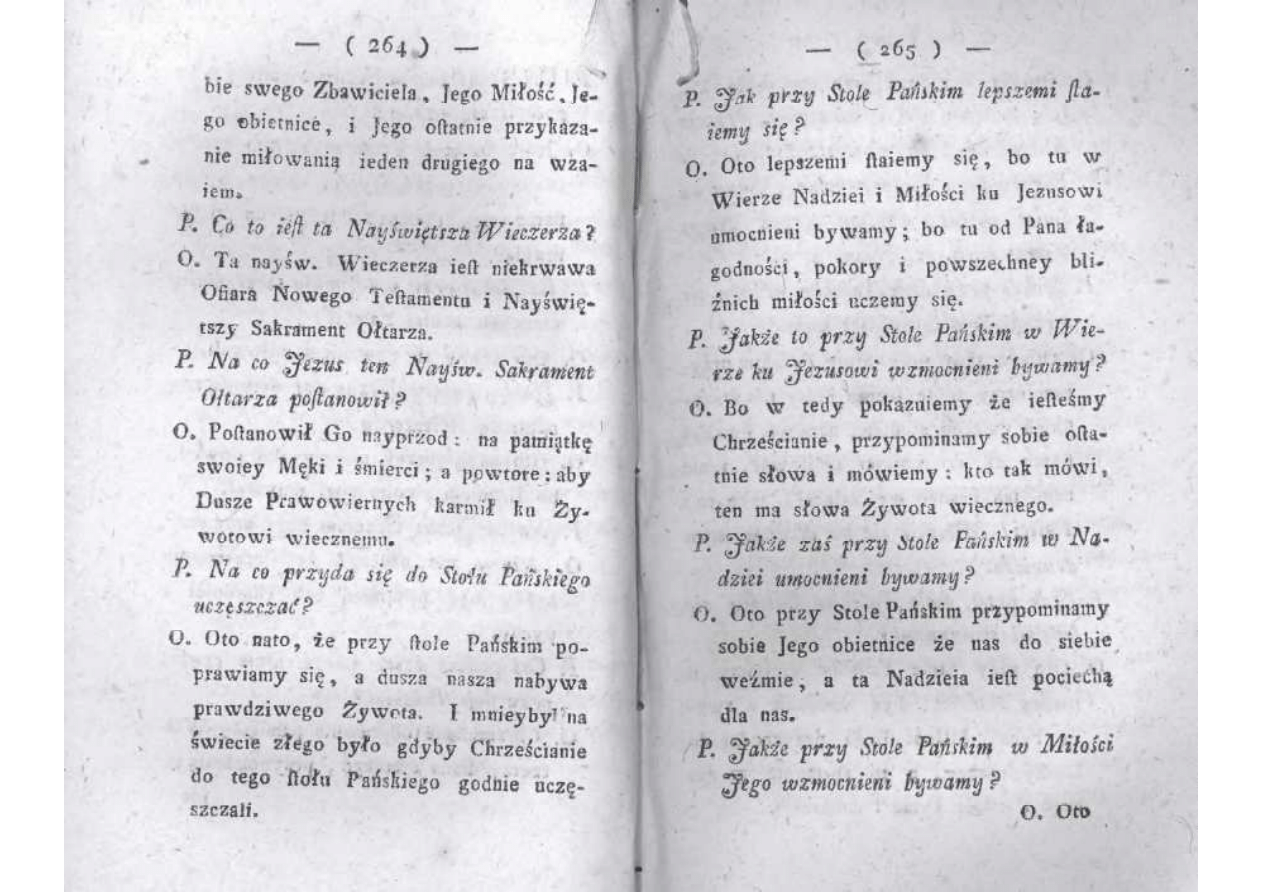 — ( 264 ) —
bie swego Zbawiciela, Jego Miłość, Je-
go obietnice, i Jego oſtatnie przykaza-
nie miłowanią ieden drugiego na wza-
iem.
P. Co to ieſt ta Nayświętsza Wieczerza?
O. Ta nayśw. Wieczerza ieſt niekrwawa
Ofiara Nowego Teſtamentu i Nayświę-
tszy Sakrament Ołtarza.
P. Na co Jezus ten Nayśw. Sakrament
Ołtarza poſtanowił?
O. Poſtanowił Go nayprzod: na pamiątkę
swoiey Męki i śmierci; a powtore: aby
Dusze Prawowiernych karmił ku Ży-
wotowi wiecznemu.
P. Na co przyda się do Stołu Pańskiego
uczęszczać?
O. Oto nato, że przy ſtole Pańskim po-
prawiamy się, a dusza nasza nabywa
prawdziwego Żywota. I mnieyby na
świecie złego było gdyby Chrześcianie
do tego ſtołu Pańskiego godnie uczę-
szczali.
— ( 265 ) —
P. Jak przy Stole Pańskim lepszemi ſta-
iemy się?
O. Oto lepszemi ſtaiemy się, bo tu w
Wierze Nadziei i Miłości ku Jezusowi
umocnieni bywamy; bo tu od Pana ła-
godności, pokory i powszechney bli-
źnich miłości uczemy się.
P. Jakże to przy Stole Pańskim w Wie-
rze ku Jezusowi wzmocnieni bywamy?
O. Bo w tedy pokazuiemy że ieſteśmy
Chrześcianie, przypominamy sobie oſta-
tnie słowa i mówiemy: kto tak mówi,
ten ma słowa Żywota wiecznego.
P. Jakże zaś przy Stole Pańskim w Na-
dziei umocnieni bywamy?
O. Oto przy Stole Pańskim przypominamy
sobie Jego obietnice że nas do siebie
weźmie, a ta Nadzieia ieſt pociechą
dla nas.
P. Jakże przy Stole Pańskim w Miłości
Jego wzmocnieni bywamy?
O. Oto